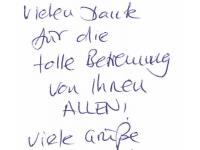 Vielen Dank
für die
tolle Betreuung
von Ihnen
ALLEN!
Viele Grüße